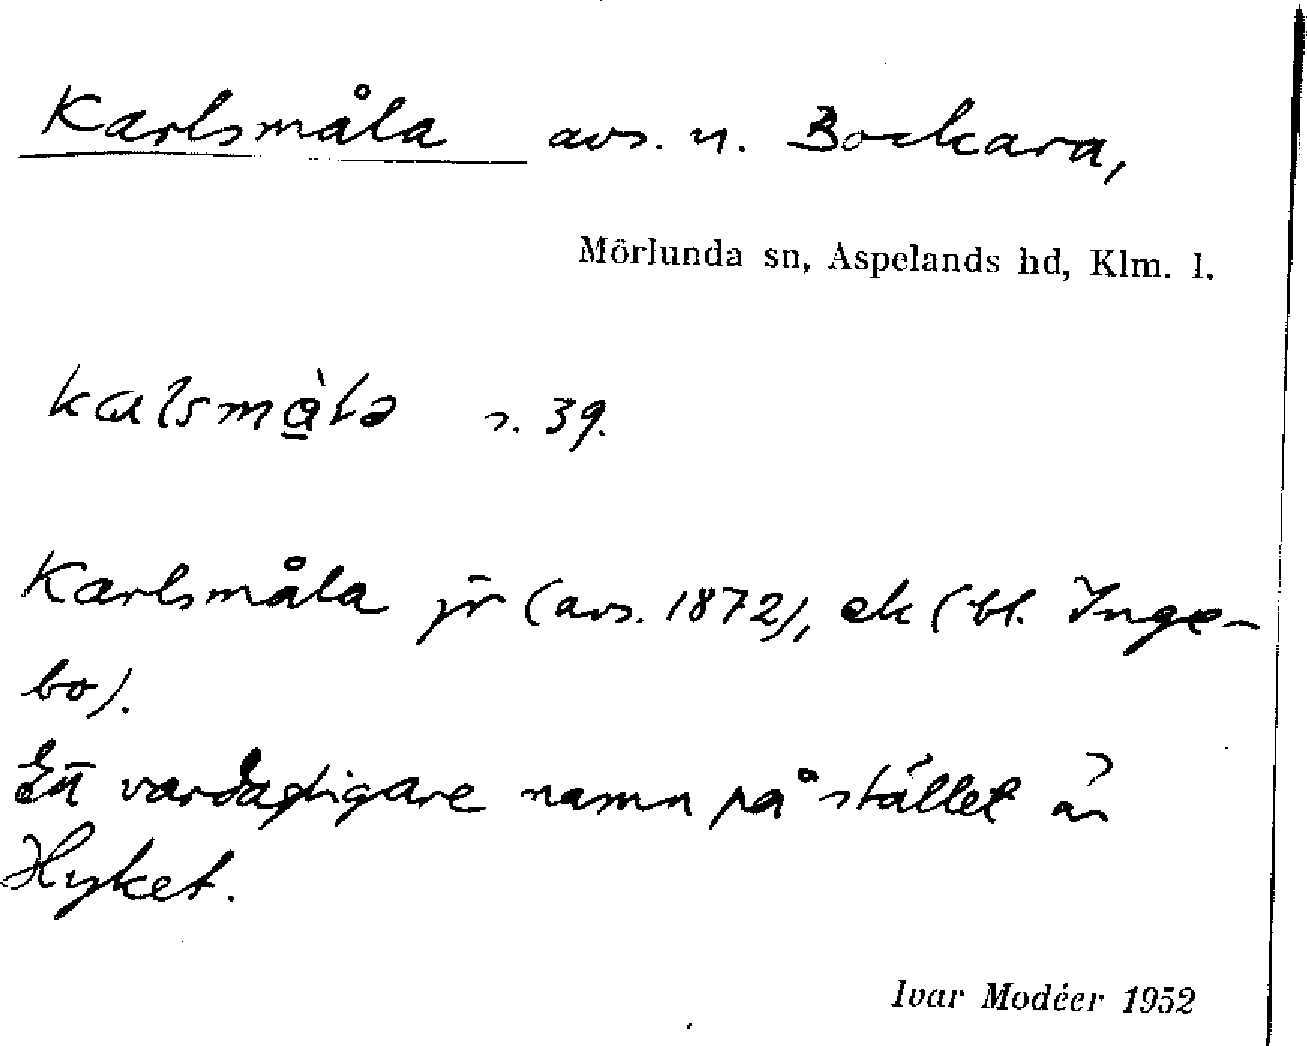 Karlsmåla avs. u. Bockara,
Mörlunda sn, Aspelands hd, Klm. l.
s. 39.
Karlsmåla jr (avs. 1872), ek (bl. Inge-
bo).
Ett vardagligare namn på stället är
Hyket.
Ivar Modéer 1952